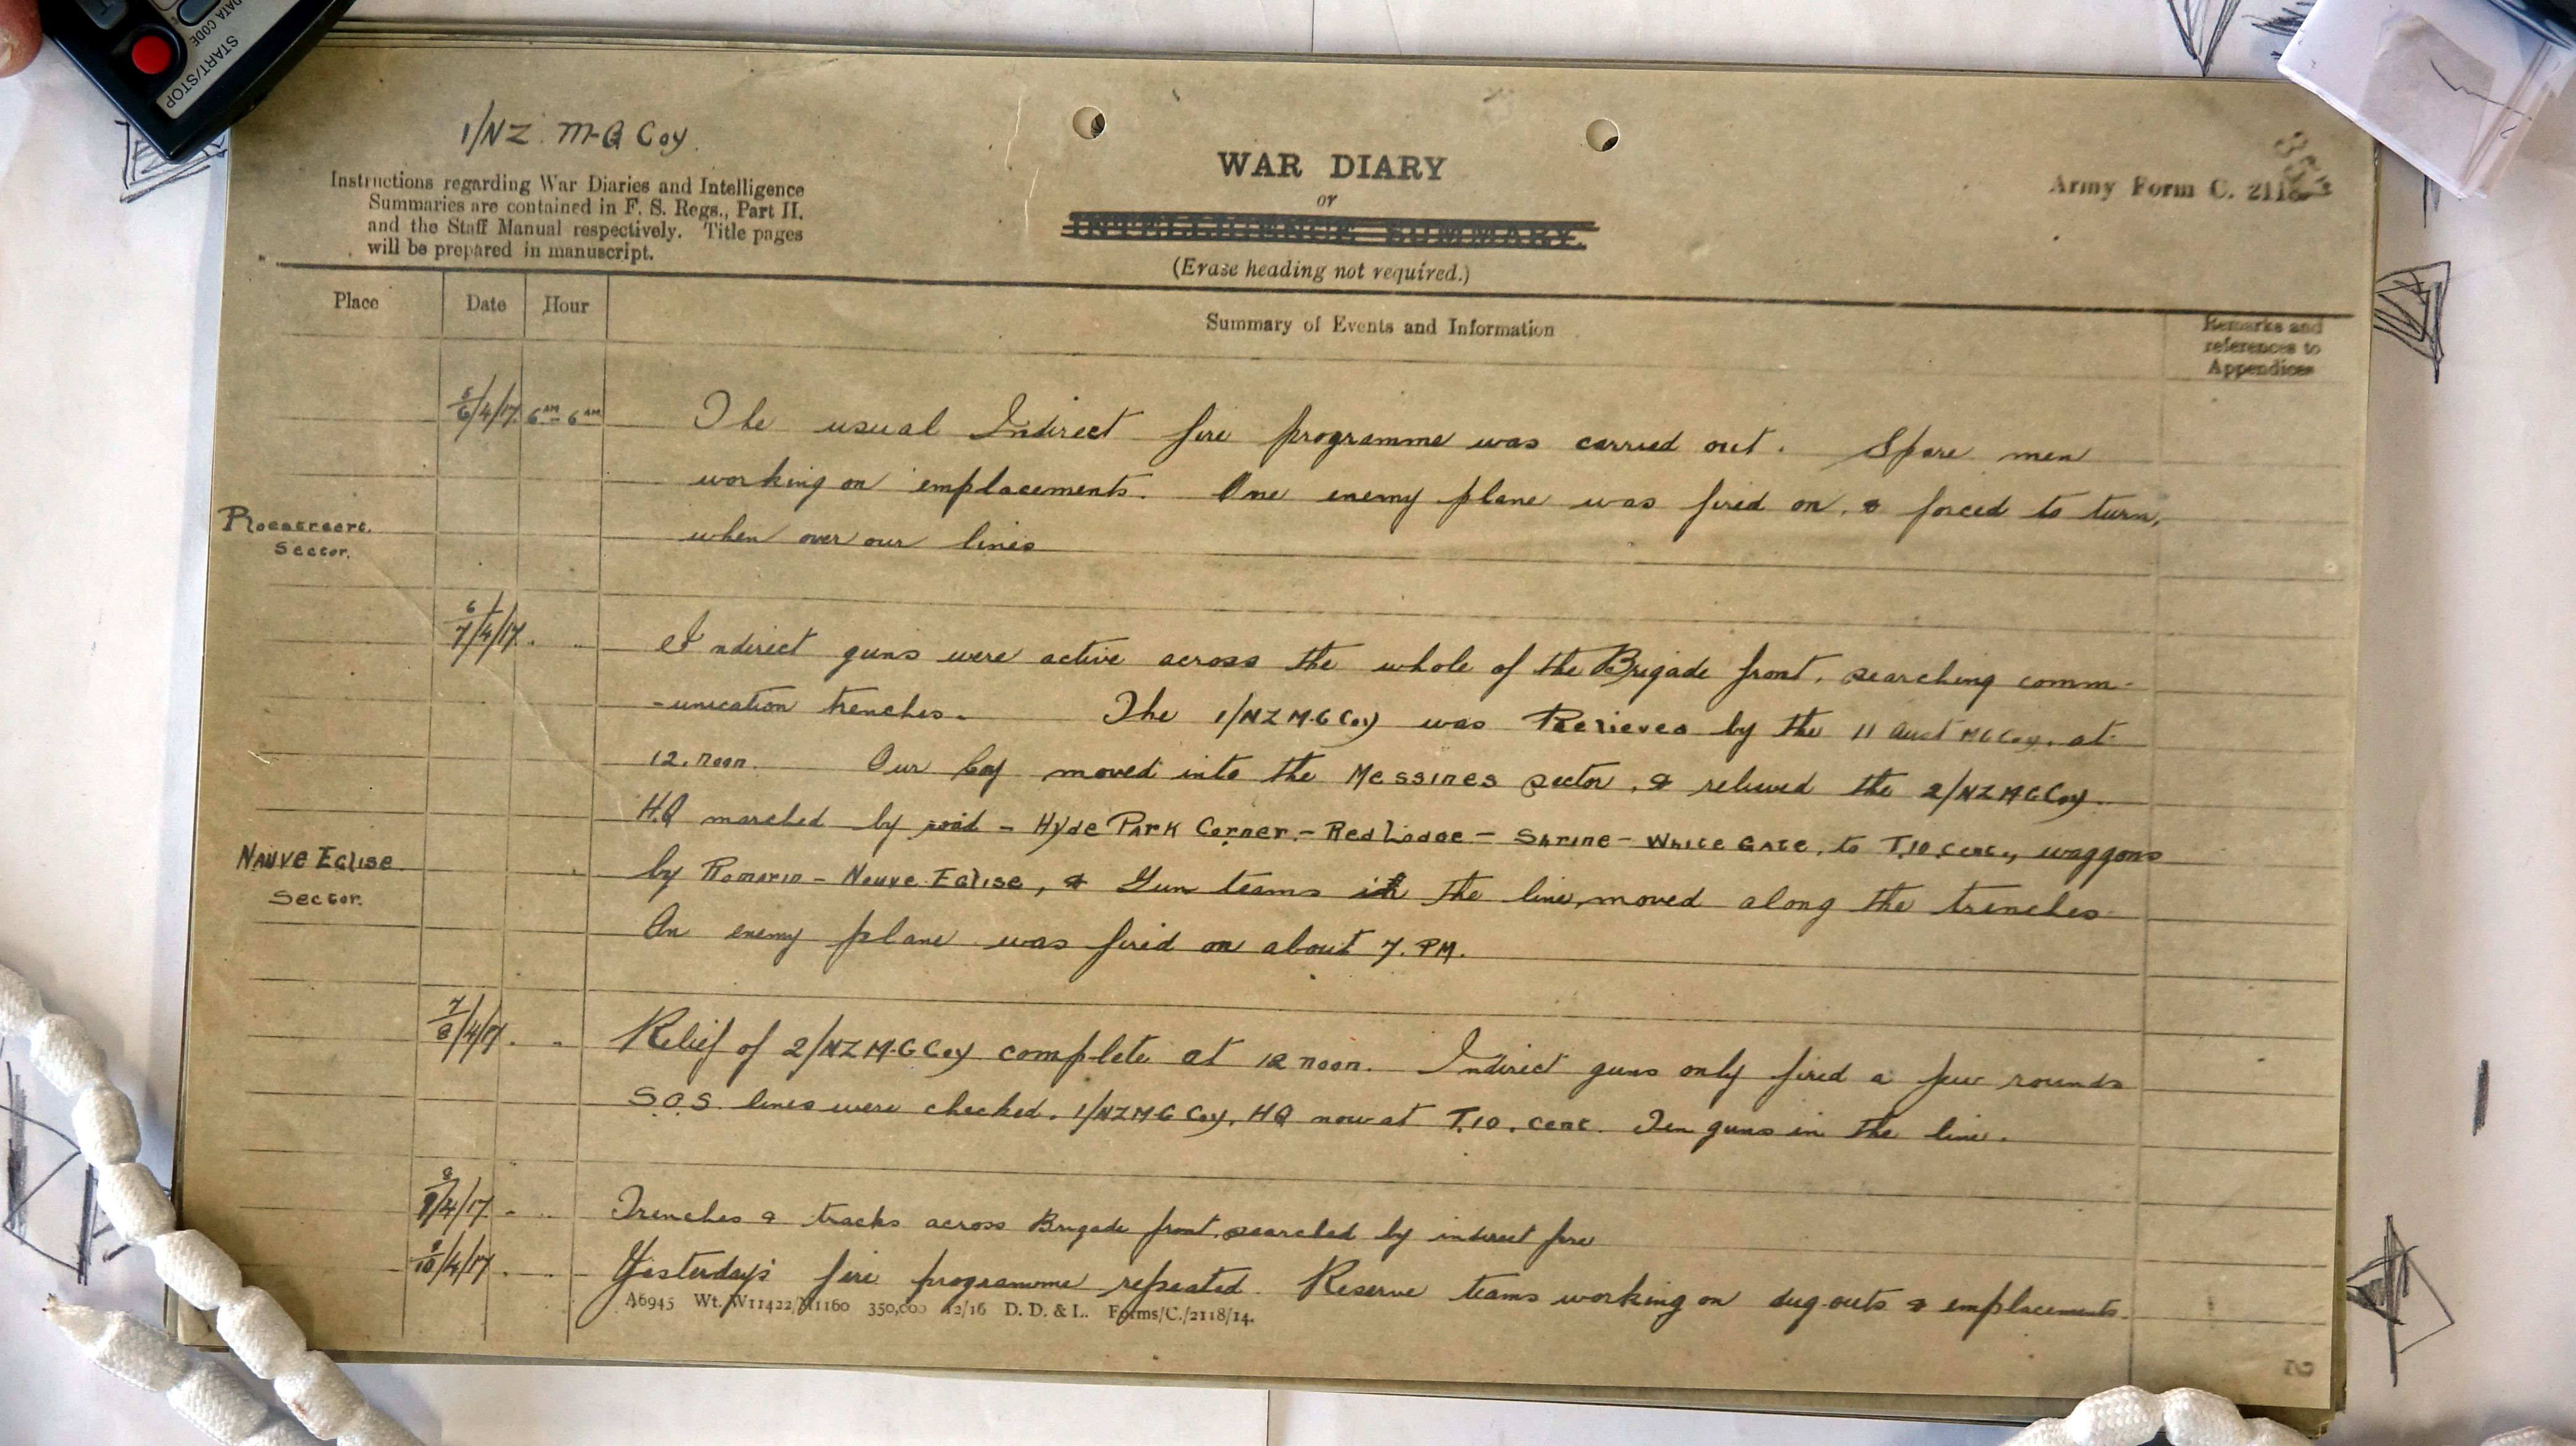 START/STOP
DATA CODE
1/NZ. M-G Coy.
Instructions regarding War Diaries and Intelligence
Summaries are contained in F. S. Regs., Part II.
and the Staff Manual respectively. Title pages
will be prepared in manuscript.
WAR DIARY
or
INTELLIGENCE SUMMARY.
(Erase heading not required.)
Army Form C. 2118
Place Date Hour Summary of Events and Information Remarks and
references to
Appendices
5/6/4/17 6 AM - 6 AM The usual Indirect fire programme was carried out. Spare men
working on emplacements. One enemy plane was fired on, & forced to turn,
Ploegsteert.
Sector.
when over our lines
6/7/4/17. .. Indirect guns were active across the whole of the Brigade front, searching comm-
-unication trenches. The 1/NZ M.G Coy was Relieved by the 11 Aust MG Coy. at
12. noon. Our Coy moved into the Messines sector, & relieved the 2/NZ M G Coy.
HQ marched by road - Hyde Park Corner - Red Lodge - Shrine - White Gate, to T.10.cent, waggons
Neuve Eglise
Sector.
by Romarin - Neuve Eglise, & Gun teams in the line, moved along the trenches
An enemy plane was fired on about 7. PM.
7/8/4/17. .. Relief of 2/NZ M.G Coy complete at 12 noon. Indirect guns only fired a few rounds
S.O.S. lines were checked. 1/NZ M G Coy. HQ now at T.10. cent. Ten guns in the line.
8/9/4/17 .. Trenches & tracks across Brigade front, searched by indirect fire
9/10/4/17. .. Yesterday's fire programme repeated. Reserve teams working on dug-outs & emplacements.
A6945 Wt. W11422/M1160 350,000 12/16 D. D. & L. Forms/C./2118/14.
2